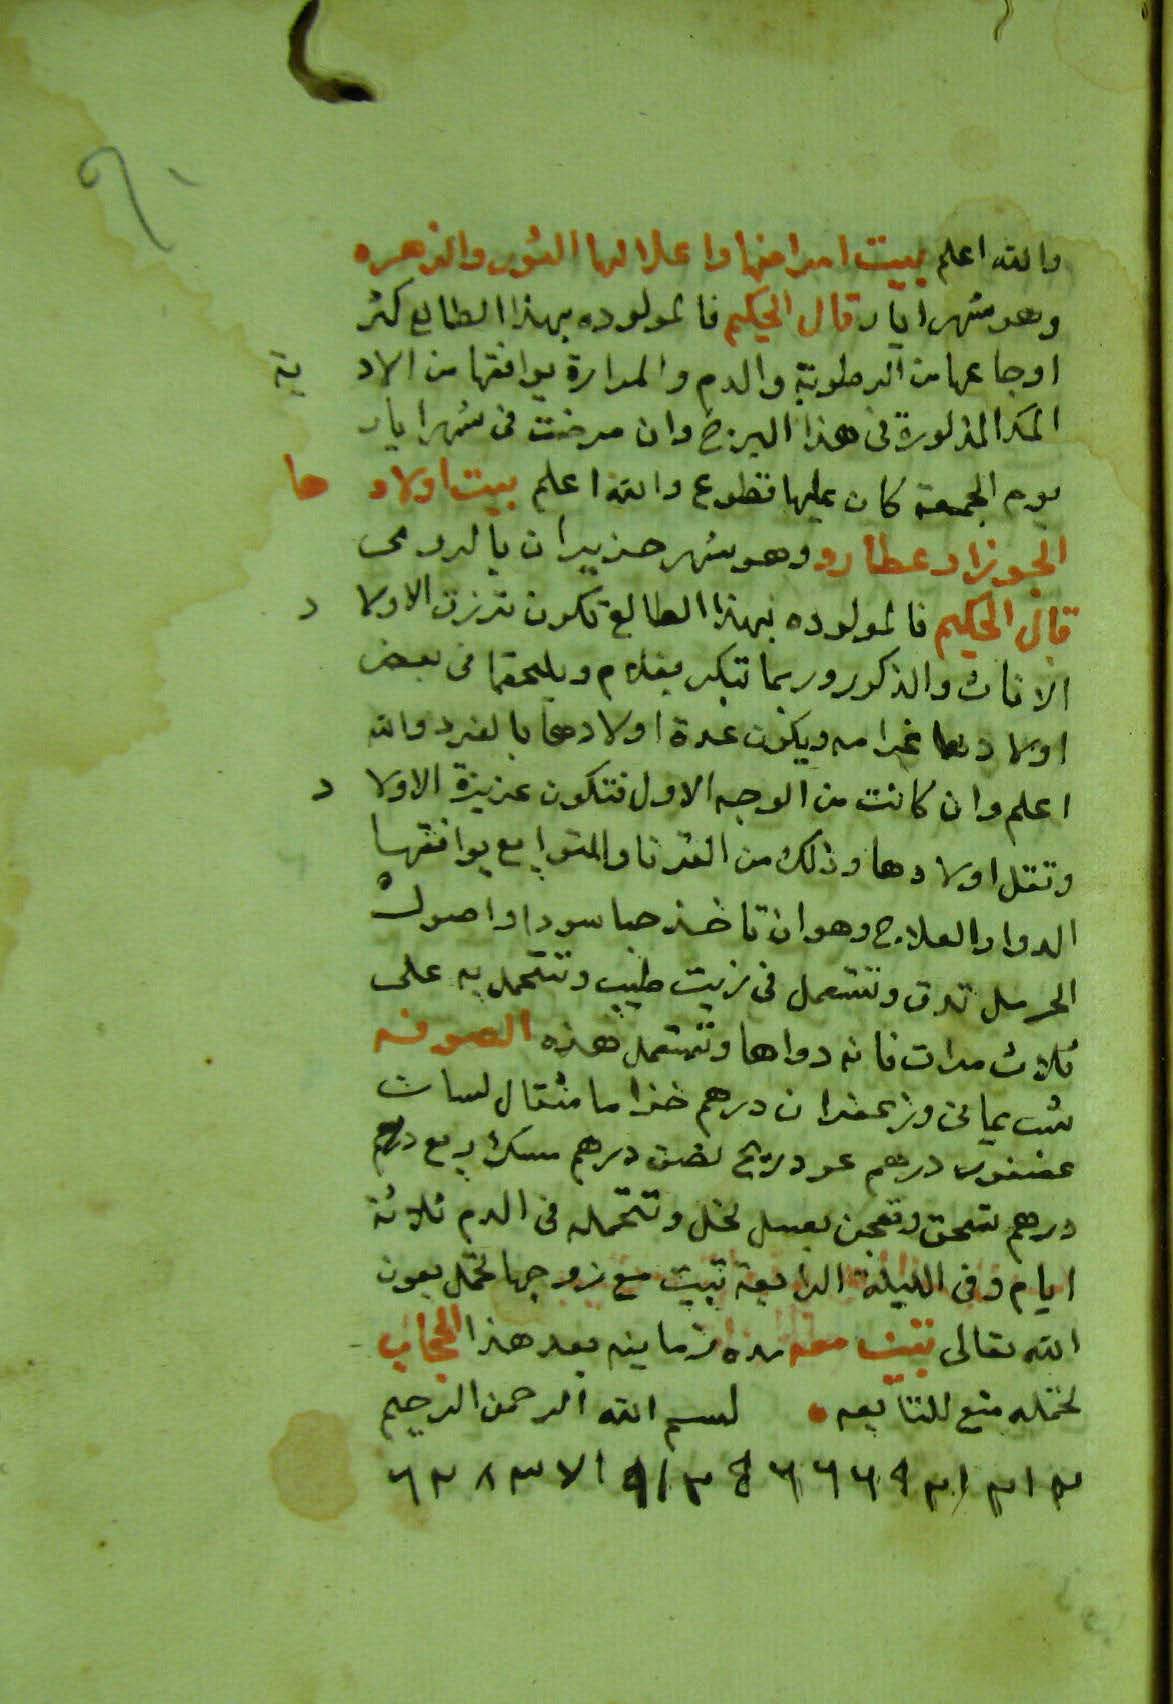 ٩٠
والله اعلم بيت امراضها واعلالها الثور والزهره
وهو شهر ايار قال الحكيم فالمولوده بهذا الطالع كثر
اوجاعها من الرطوبة والدم والمرارة يوافقها من الاد ية
المذكورة في هذا البرج وان مرضت في شهر ايار
يوم الجمعة كان عليها قطوع والله اعلم بيت اولاد ها
الجوزاء وعطارد وهو شهر حزيران بالرومى
قال الحكيم فالمولوده بهذا الطالع تكون ترزق الاولا د
الاناث والذكور وربما تبكر بغلام ويلحقها في بعض
اولادها غرامه ويكون عدة اولادها بالفرد والله
اعلم وان كانت من الوجه الاول فتكون عزيزة الاولا د
وتقل اولادها وذلك من القرنا والتوابع يوافقها
الدوا والعلاج وهو ان تاخذ حبا سودا واصول
الحرمل تدق وتستعمل في زيت طيب وتتحمل به على
ثلاث مرات فانه دواها وتستعمل هذه الصوفه
شب يمانى وزعفران درهم خزاما مثقال لسان
عصفور درهم عود ريح نصف درهم مسك ربع درهم
درهم تسحق وتعجن بعسل نحل وتتحمله في الدم ثلاثة
ايام وفى الليلة الرابعة تبيت مع زوجها تحمل بعون
الله تعالى بعد هذا الحجاب
تحمله منع للتابعه بسم الله الرحمن الرحيم